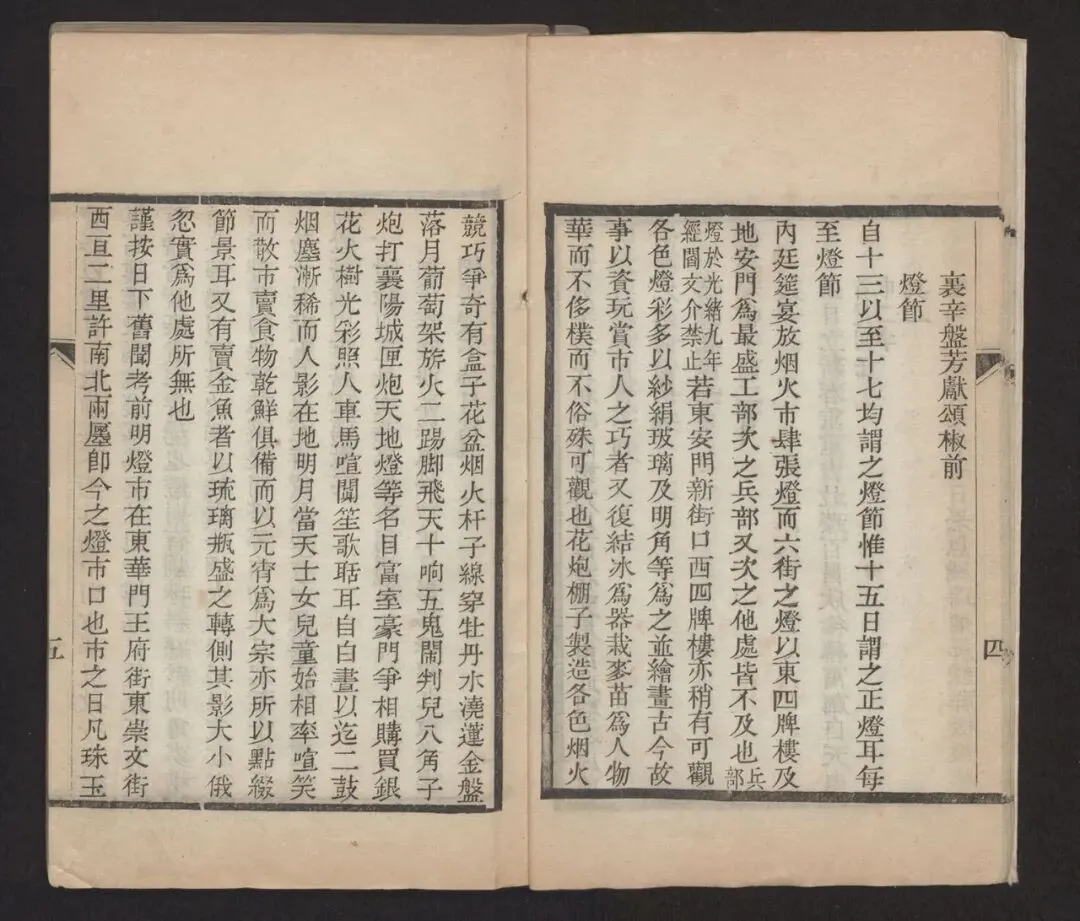 裏辛盤芳獻頌椒前
燈節
自十三以至十七均謂之燈節惟十五日謂之正燈耳每
至燈節
內廷筵宴放烟火市肆張燈而六街之燈以東四牌樓及
地安門爲最盛工部次之兵部又次之他處皆不及也兵部
燈於光緒九年經閻文介禁止若東安門新街口西四牌樓亦稍有可觀
各色燈彩多以紗絹玻璃及明角等爲之並繪畫古今故
事以資玩賞市人之巧者又復結冰爲器栽麥苗爲人物
華而不侈樸而不俗殊可觀也花炮棚子製造各色烟火
四
競巧爭奇有盒子花盆烟火杆子線穿牡丹水澆蓮金盤
落月葡萄架旂火二踢脚飛天十响五鬼鬧判兒八角子
炮打襄陽城匣炮天地燈等名目富室豪門爭相購買銀
花火樹光彩照人車馬喧闐笙歌聒耳自白晝以迄二鼓
烟塵漸稀而人影在地明月當天士女兒童始相率喧笑
而散市賣食物乾鮮俱備而以元宵爲大宗亦所以點綴
節景耳又有賣金魚者以琉璃瓶盛之轉側其影大小俄
忽實爲他處所無也
謹按日下舊聞考前明燈市在東華門王府街東崇文街
西亘二里許南北兩廛卽今之燈市口也市之日凡珠玉
五